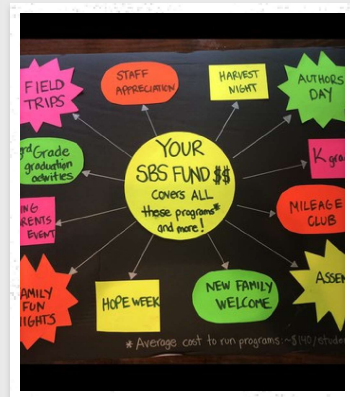 FIELD
TRIPS
STAFF
APPRECIATION
HARVEST
NIGHT
AUTHORS
DAY
rd Grade
graduation
activities
YOUR
SBS FUND $$
COVERS ALL
these programs*
and more!
K gra
NG
RENTS
EVENT
MILEAGE
CLUB
AMILY
FUN
IGHTS
HOPE WEEK
NEW FAMILY
WELCOME
ASSEM
* Average cost to run programs: ~$140/studen